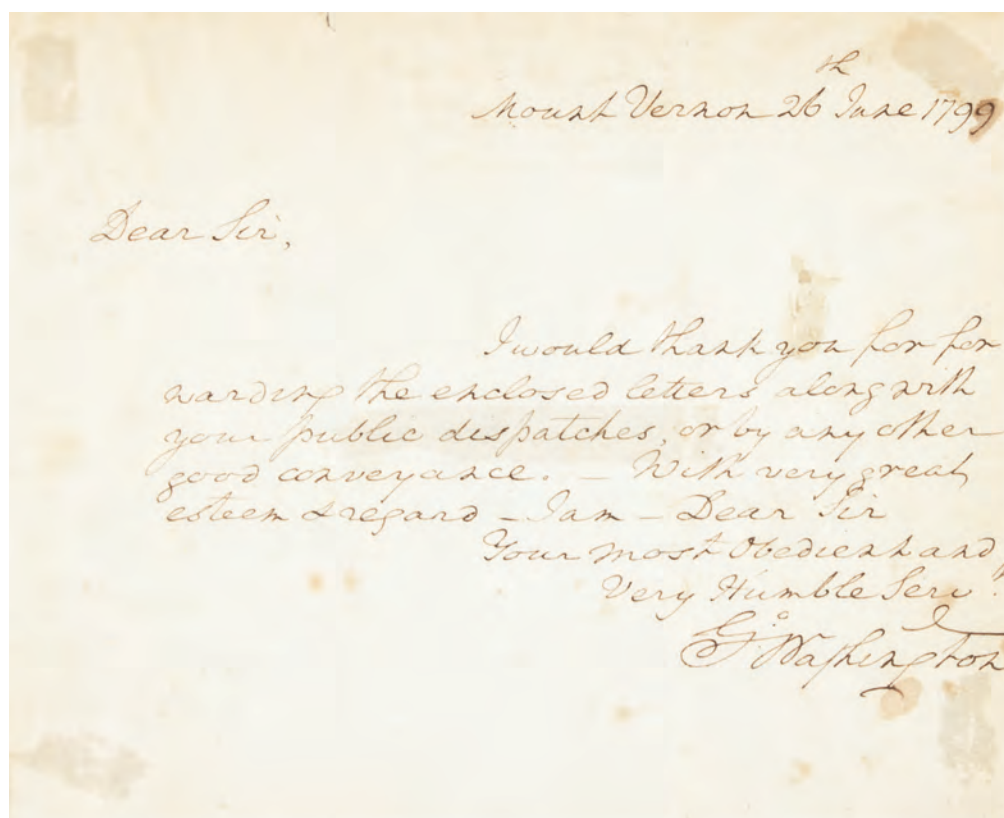 Mount Vernon 26th June 1799
Dear Sir,
I would thank you for for
warding the enclosed letters along with
your public dispatches, or by any other
good conveyance. — With very great
esteem & regard – I am – Dear Sir
Your most Obedient and
Very Humble Servt.
Go: Washington